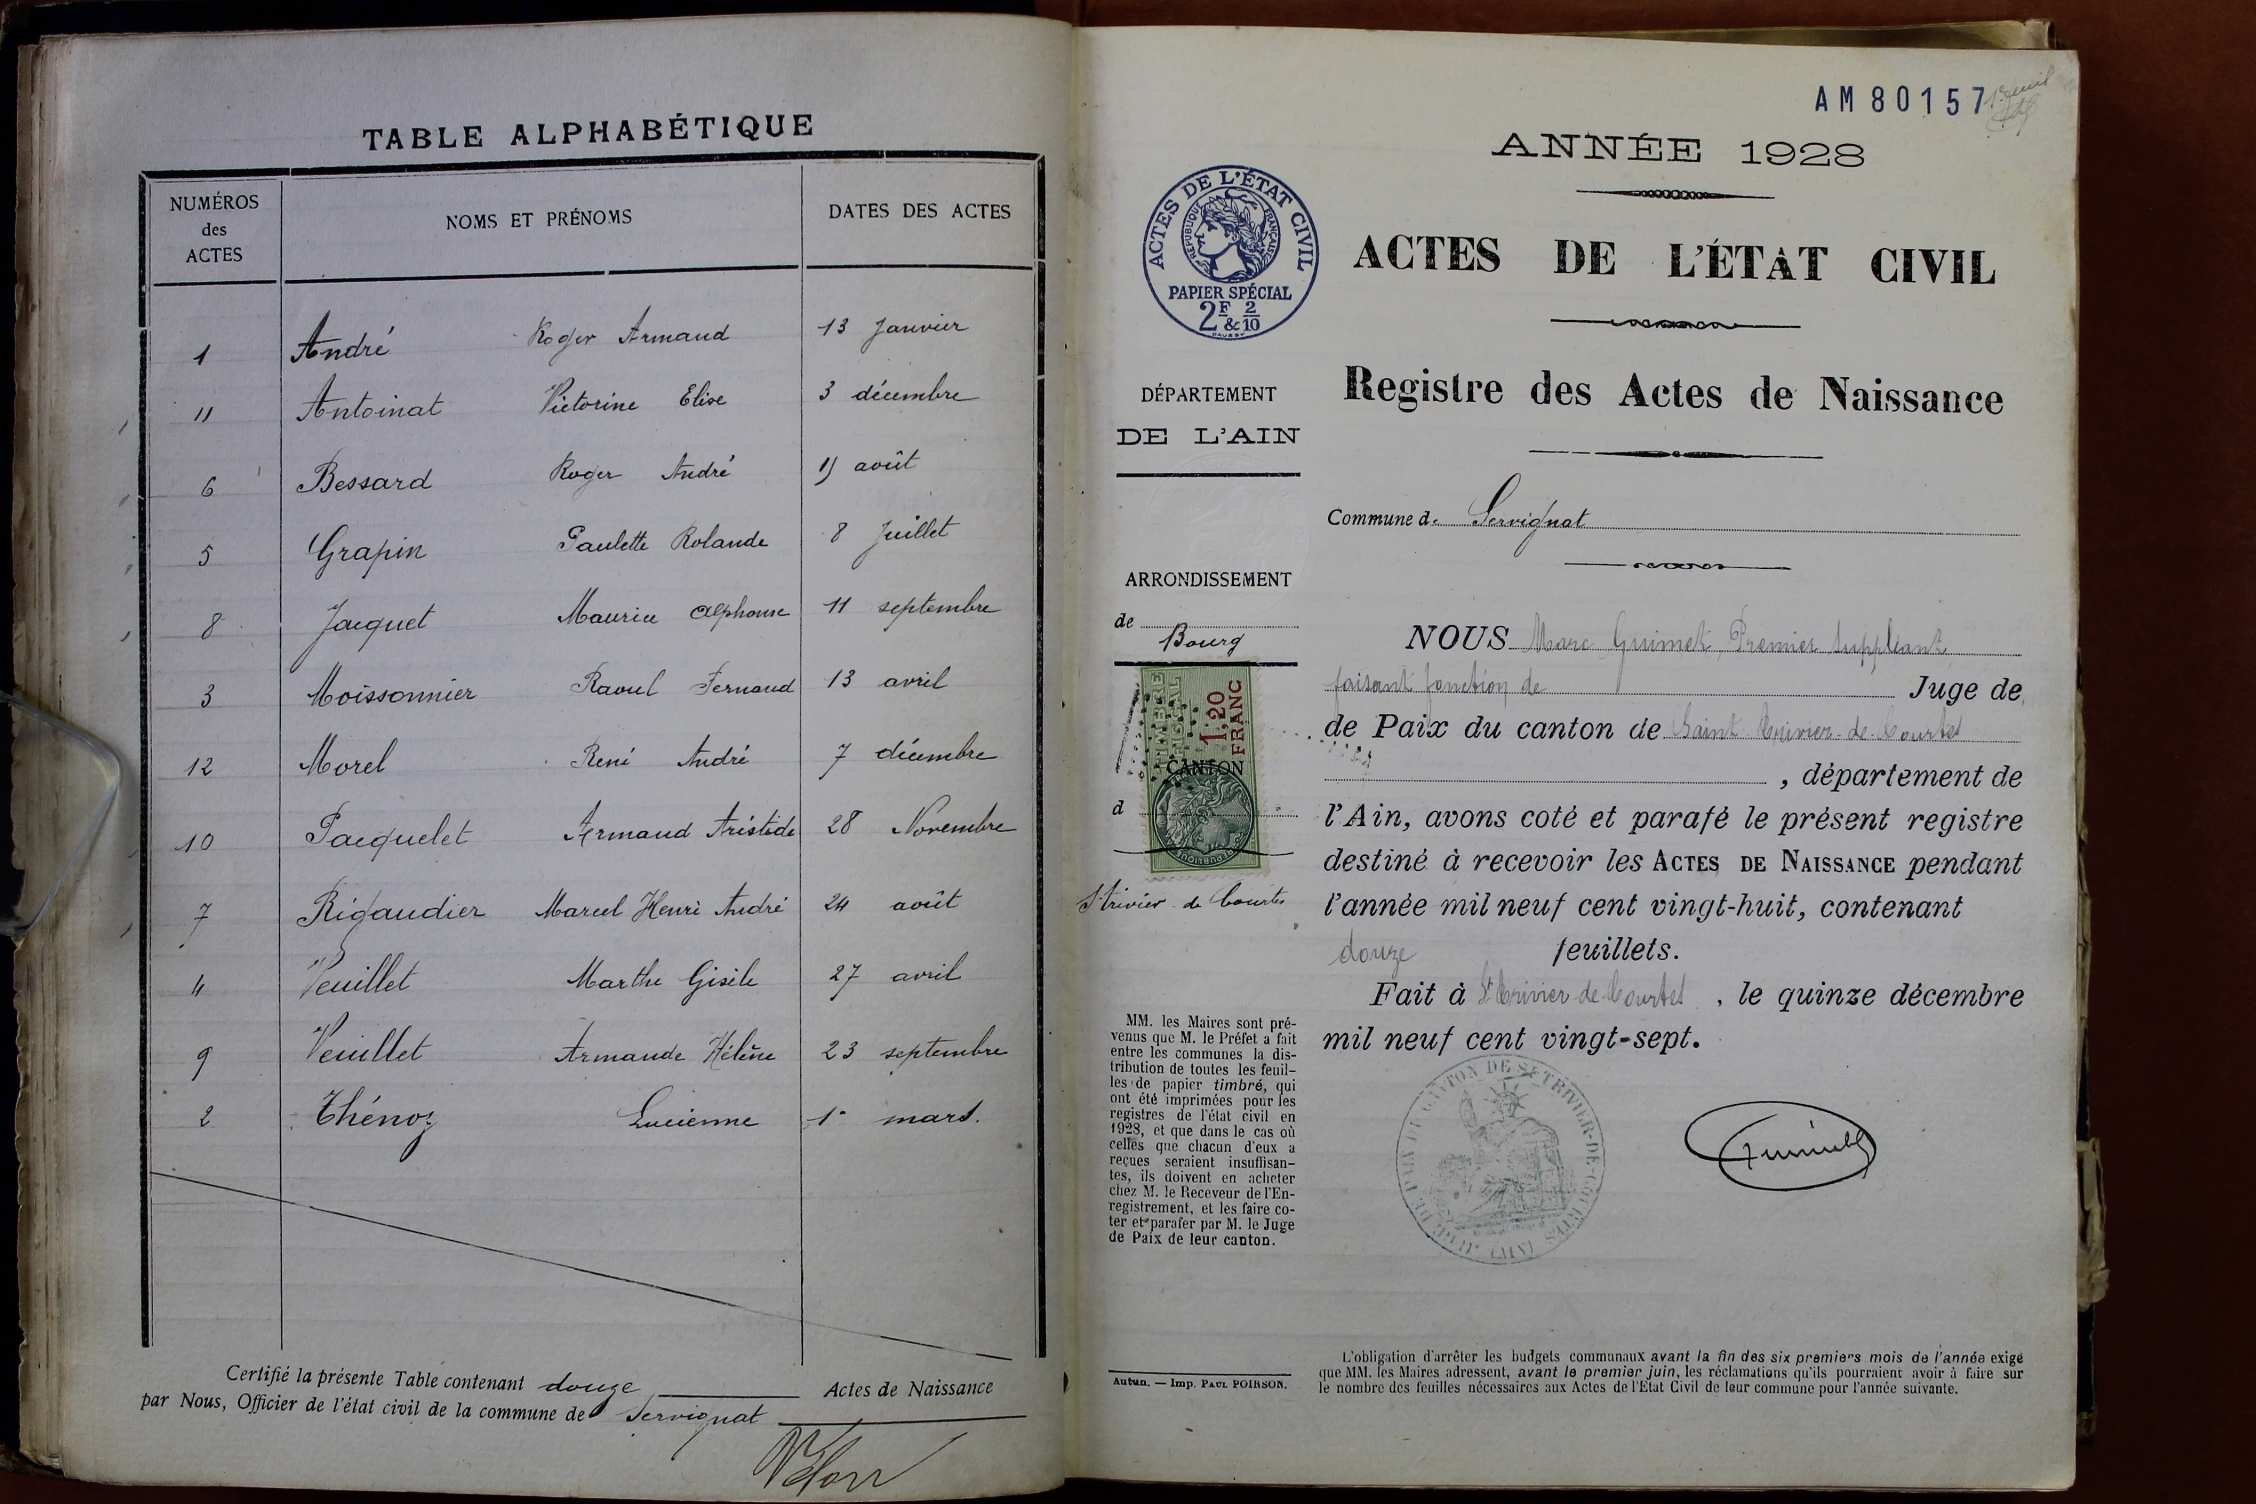 TABLE ALPHABÉTIQUE
NUMÉROS des ACTES NOMS ET PRÉNOMS DATES DES ACTES
1 André Roger Armand 13 Janvier
11 Antoinat Victorine Elise 3 décembre
6 Bessard Roger André août
5 Grapin Paulette Rolande 8 Juillet
8 Jacquet Maurice Alphonse 11 septembre
3 Moissonnier Raoul Fernand 13 avril
12 Morel René André 7 décembre
10 Pacquelet Armand Aristide 28 Novembre
7 Rigaudier Marcel Henri André 24 août
4 Veuillet Marthe Gisèle 27 avril
9 Veuillet Armande Hélène 23 septembre
2 Thénoz Lucienne 1er mars.
Certifié la présente Table contenant douze Actes de Naissance
par Nous, Officier de l'état civil de la commune de Servignat
AM 80157
ANNÉE 1928
ACTES DE L'ÉTAT CIVIL
RÉPUBLIQUE FRANÇAISE
PAPIER SPÉCIAL
2F & 2/10
ACTES DE L'ÉTAT CIVIL
Registre des Actes de Naissance
DÉPARTEMENT
DE L'AIN
Commune d. Servignat
ARRONDISSEMENT
de
Bourg
1,20
FRANC
CANTON
d
St trivier de Courtes
NOUS Marc Guimet, Premier suppléant
faisant fonction de Juge de
de Paix du canton de Saint Trivier-de-Courtes
, département de
l'Ain, avons coté et parafé le présent registre
destiné à recevoir les ACTES DE NAISSANCE pendant
l'année mil neuf cent vingt-huit, contenant
douze feuillets.
Fait à St Trivier de Courtes , le quinze décembre
mil neuf cent vingt-sept.
MM. les Maires sont pré-
venus que M. le Préfet a fait
entre les communes la dis-
tribution de toutes les feuil-
les de papier timbré, qui
ont été imprimées pour les
registres de l'état civil en
1928, et que dans le cas où
celles que chacun d'eux a
reçues seraient insuffisan-
tes, ils doivent en acheter
chez M. le Receveur de l'En-
registrement, et les faire co-
ter et parafer par M. le Juge
de Paix de leur canton.
Autun. — Imp. PAUL POIRSON.
L'obligation d'arrêter les budgets communaux avant la fin des six premiers mois de l'année exige
que MM. les Maires adressent, avant le premier juin, les réclamations qu'ils pourraient avoir à faire sur
le nombre des feuilles nécessaires aux Actes de l'État Civil de leur commune pour l'année suivante.